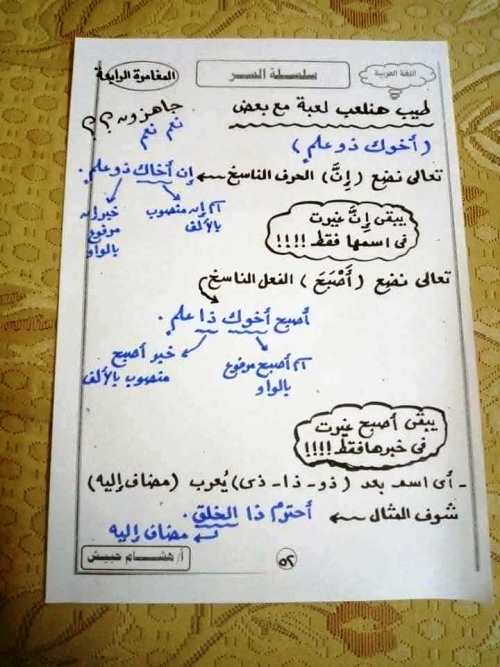 اللغة العربية
سلسلة السر
المغامرة الرابعة
طيب هنلعب لعبة مع بعض
جاهزون ؟؟
نعم نعم
( أخوك ذو علم )
تعالى نضع ( إنَّ ) الحرف الناسخ ← إن أخاك ذو علم .
اسم إن منصوب بالألف
خبر إن مرفوع بالواو
يبقى إنَّ غيرت
فى اسمها فقط !!!!
تعالى نضع ( أَصْبَحَ ) الفعل الناسخ
أصبح أخوك ذا علم .
اسم أصبح مرفوع بالواو
خبر أصبح
منصوب بالألف
يبقى أصبح غيرت
فى خبرها فقط !!!!
- أى اسم بعد ( ذو - ذا - ذى ) يُعرب ( مضاف إليه )
شوف المثال ← أحترم ذا الخلق .
مضاف إليه
أ/ هشام حبيش
٥٢